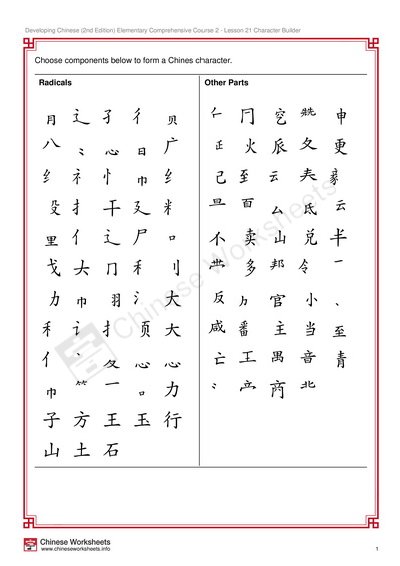 Developing Chinese (2nd Edition) Elementary Comprehensive Course 2 - Lesson 21 Character Builder
Choose components below to form a Chines character.
Radicals
月 辶 孑 彳 贝
八 冫 心 日 广
纟 礻 忄 巾 纟
殳 扌 干 廴 米
里 亻 辶 尸 口
戈 大 冂 禾 刂
力 巾 羽 氵 大
禾 讠 扌 页 大
亻 冫 夂 心 心
巾 ⺮ 一 口 力
子 方 王 玉 行
山 土 石
Other Parts
冂 空 申
正 火 辰 夂 更
己 至 云 夫
旦 面 厶 氐 云
不 卖 山 兑 半
多 邦 令 一
反 官 小 、
咸 番 主 当 至
亡 王 禺 音 青
商 北
Chinese Worksheets
Chinese Worksheets
www.chineseworksheets.info
1